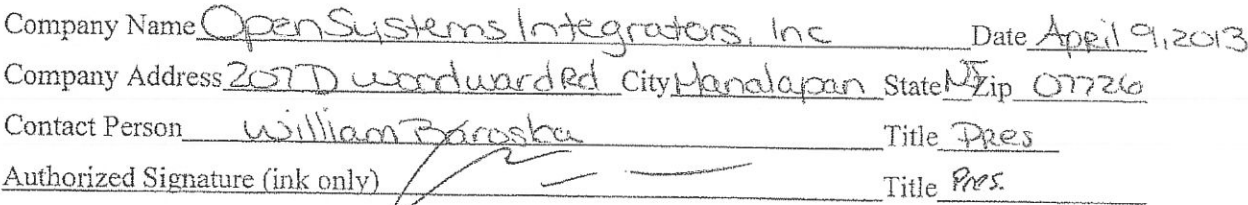 Company Name Open Systems Integrators, Inc Date April 9, 2013
Company Address 207D Woodward Rd City Manalapan State NJ Zip 07726
Contact Person William Baroska Title Pres
Authorized Signature (ink only) Title Pres.